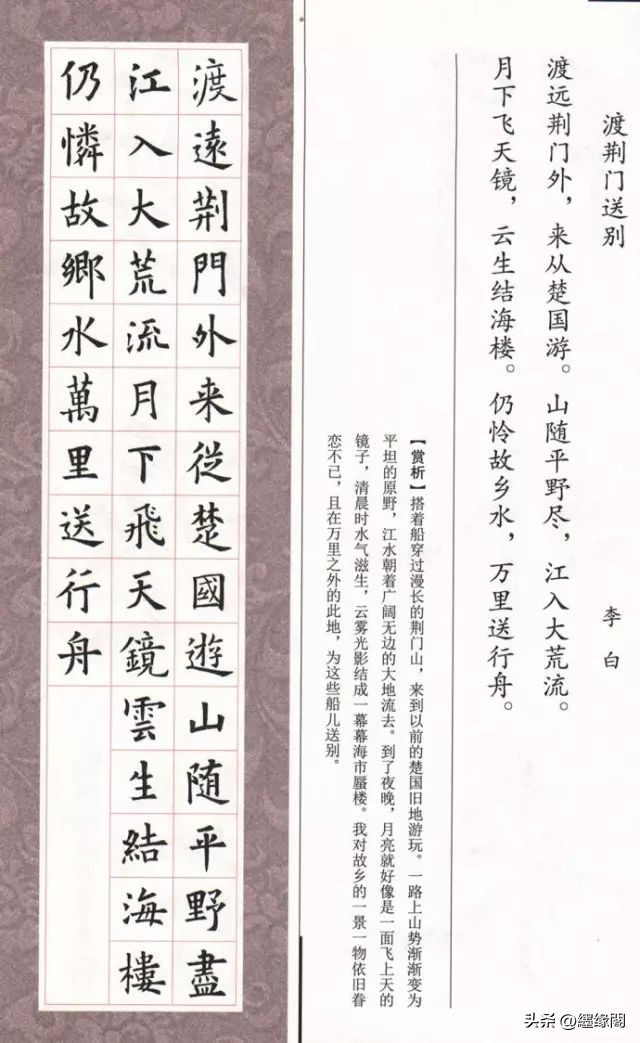 渡荆门送别
李白
渡远荆门外，来从楚国游。山随平野尽，江入大荒流。
月下飞天镜，云生结海楼。仍怜故乡水，万里送行舟。
【赏析】搭着船穿过漫长的荆门山，来到以前的楚国旧地游玩。一路上山势渐渐变为
平坦的原野，江水朝着广阔无边的大地流去。到了夜晚，月亮就好像是一面飞上天的
镜子，清晨时水气滋生，云雾光影结成一幕幕海市蜃楼。我对故乡的一景一物依旧眷
恋不已，且在万里之外的此地，为这些船儿送别。
渡遠荆門外来從楚國遊山随平野盡
江入大荒流月下飛天鏡雲生結海樓
仍憐故鄉水萬里送行舟
头条 @纒缘閣